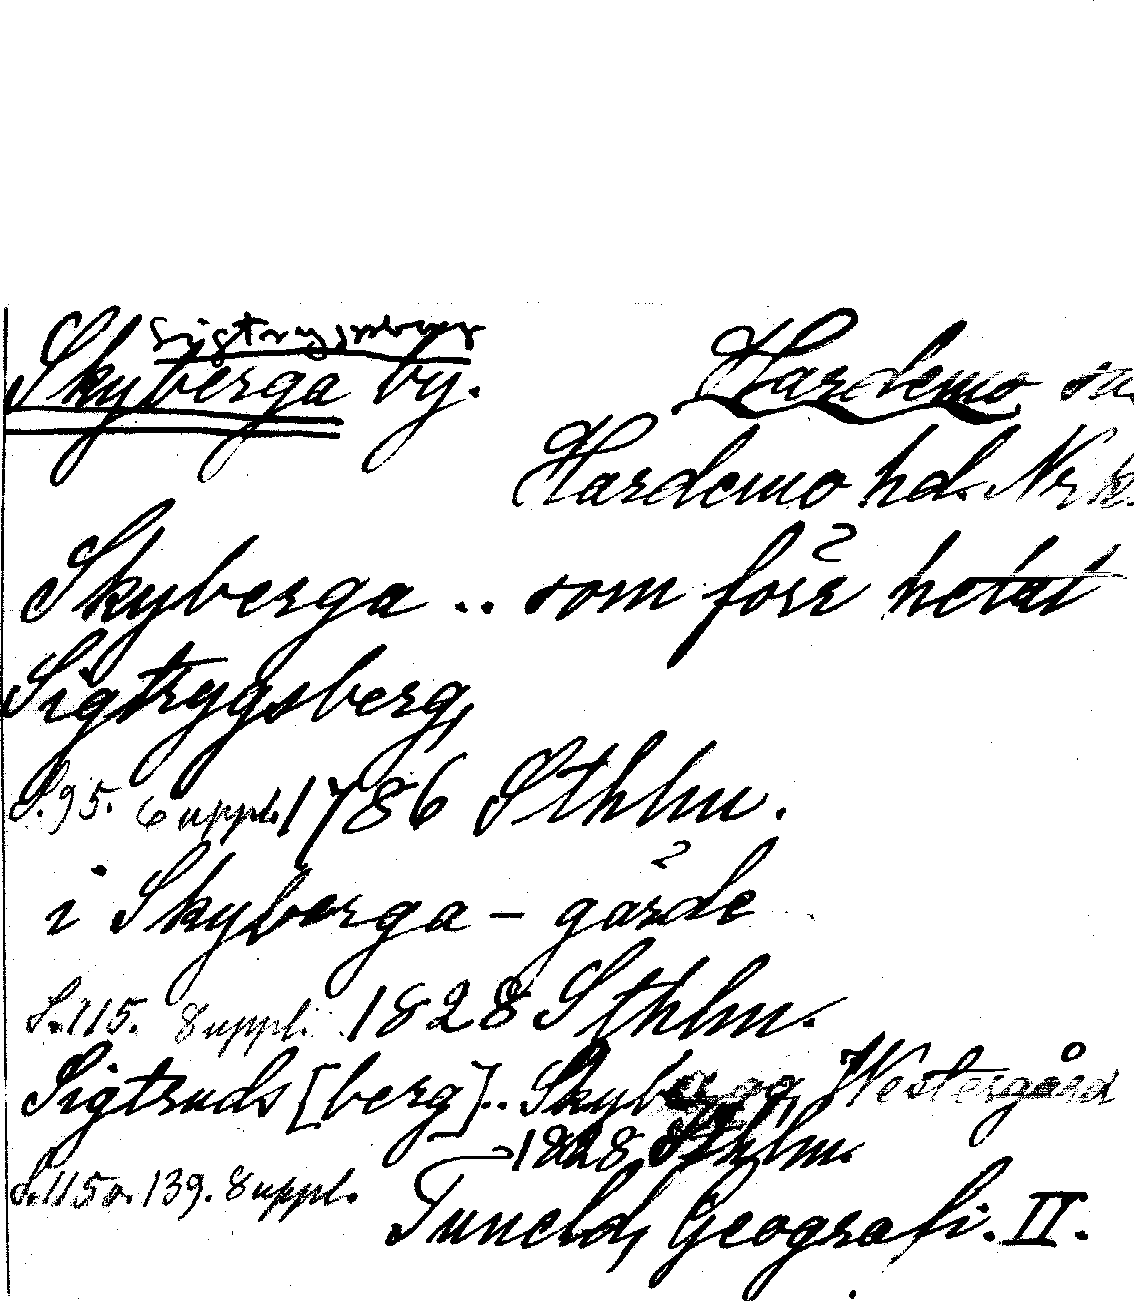 Sigtrygsberg
Skyberga by. Hardemo sn
Hardemo hd. Nrk.
Skyberga .. som förr hetat
Sigtrygsberg,
S. 95. Suppl. 1786 Sthlm.
i Skyberga - gärde
S. 115. Suppl. 1828 Sthlm.
Sigtruds [berg].. Westergård
1828 Sthlm.
S. 115 o. 139. Suppl.
Tuneld, Geografi. II.